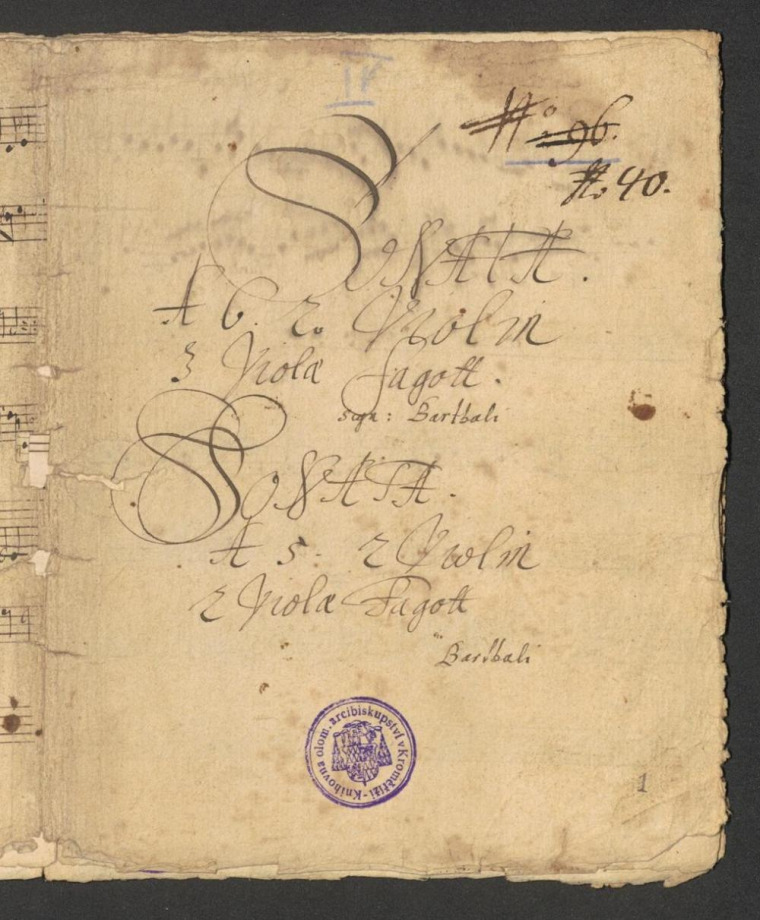 IV
N: 96.
N. 40.
SONATA.
A 6. 2. Violin
3 Violæ Fagott.
Sign: Barthali
SONATA.
A 5. 2 Violin
2 Violæ Fagott
Barthali
Knihovna olom. arcibiskupství v Kroměříži -
1